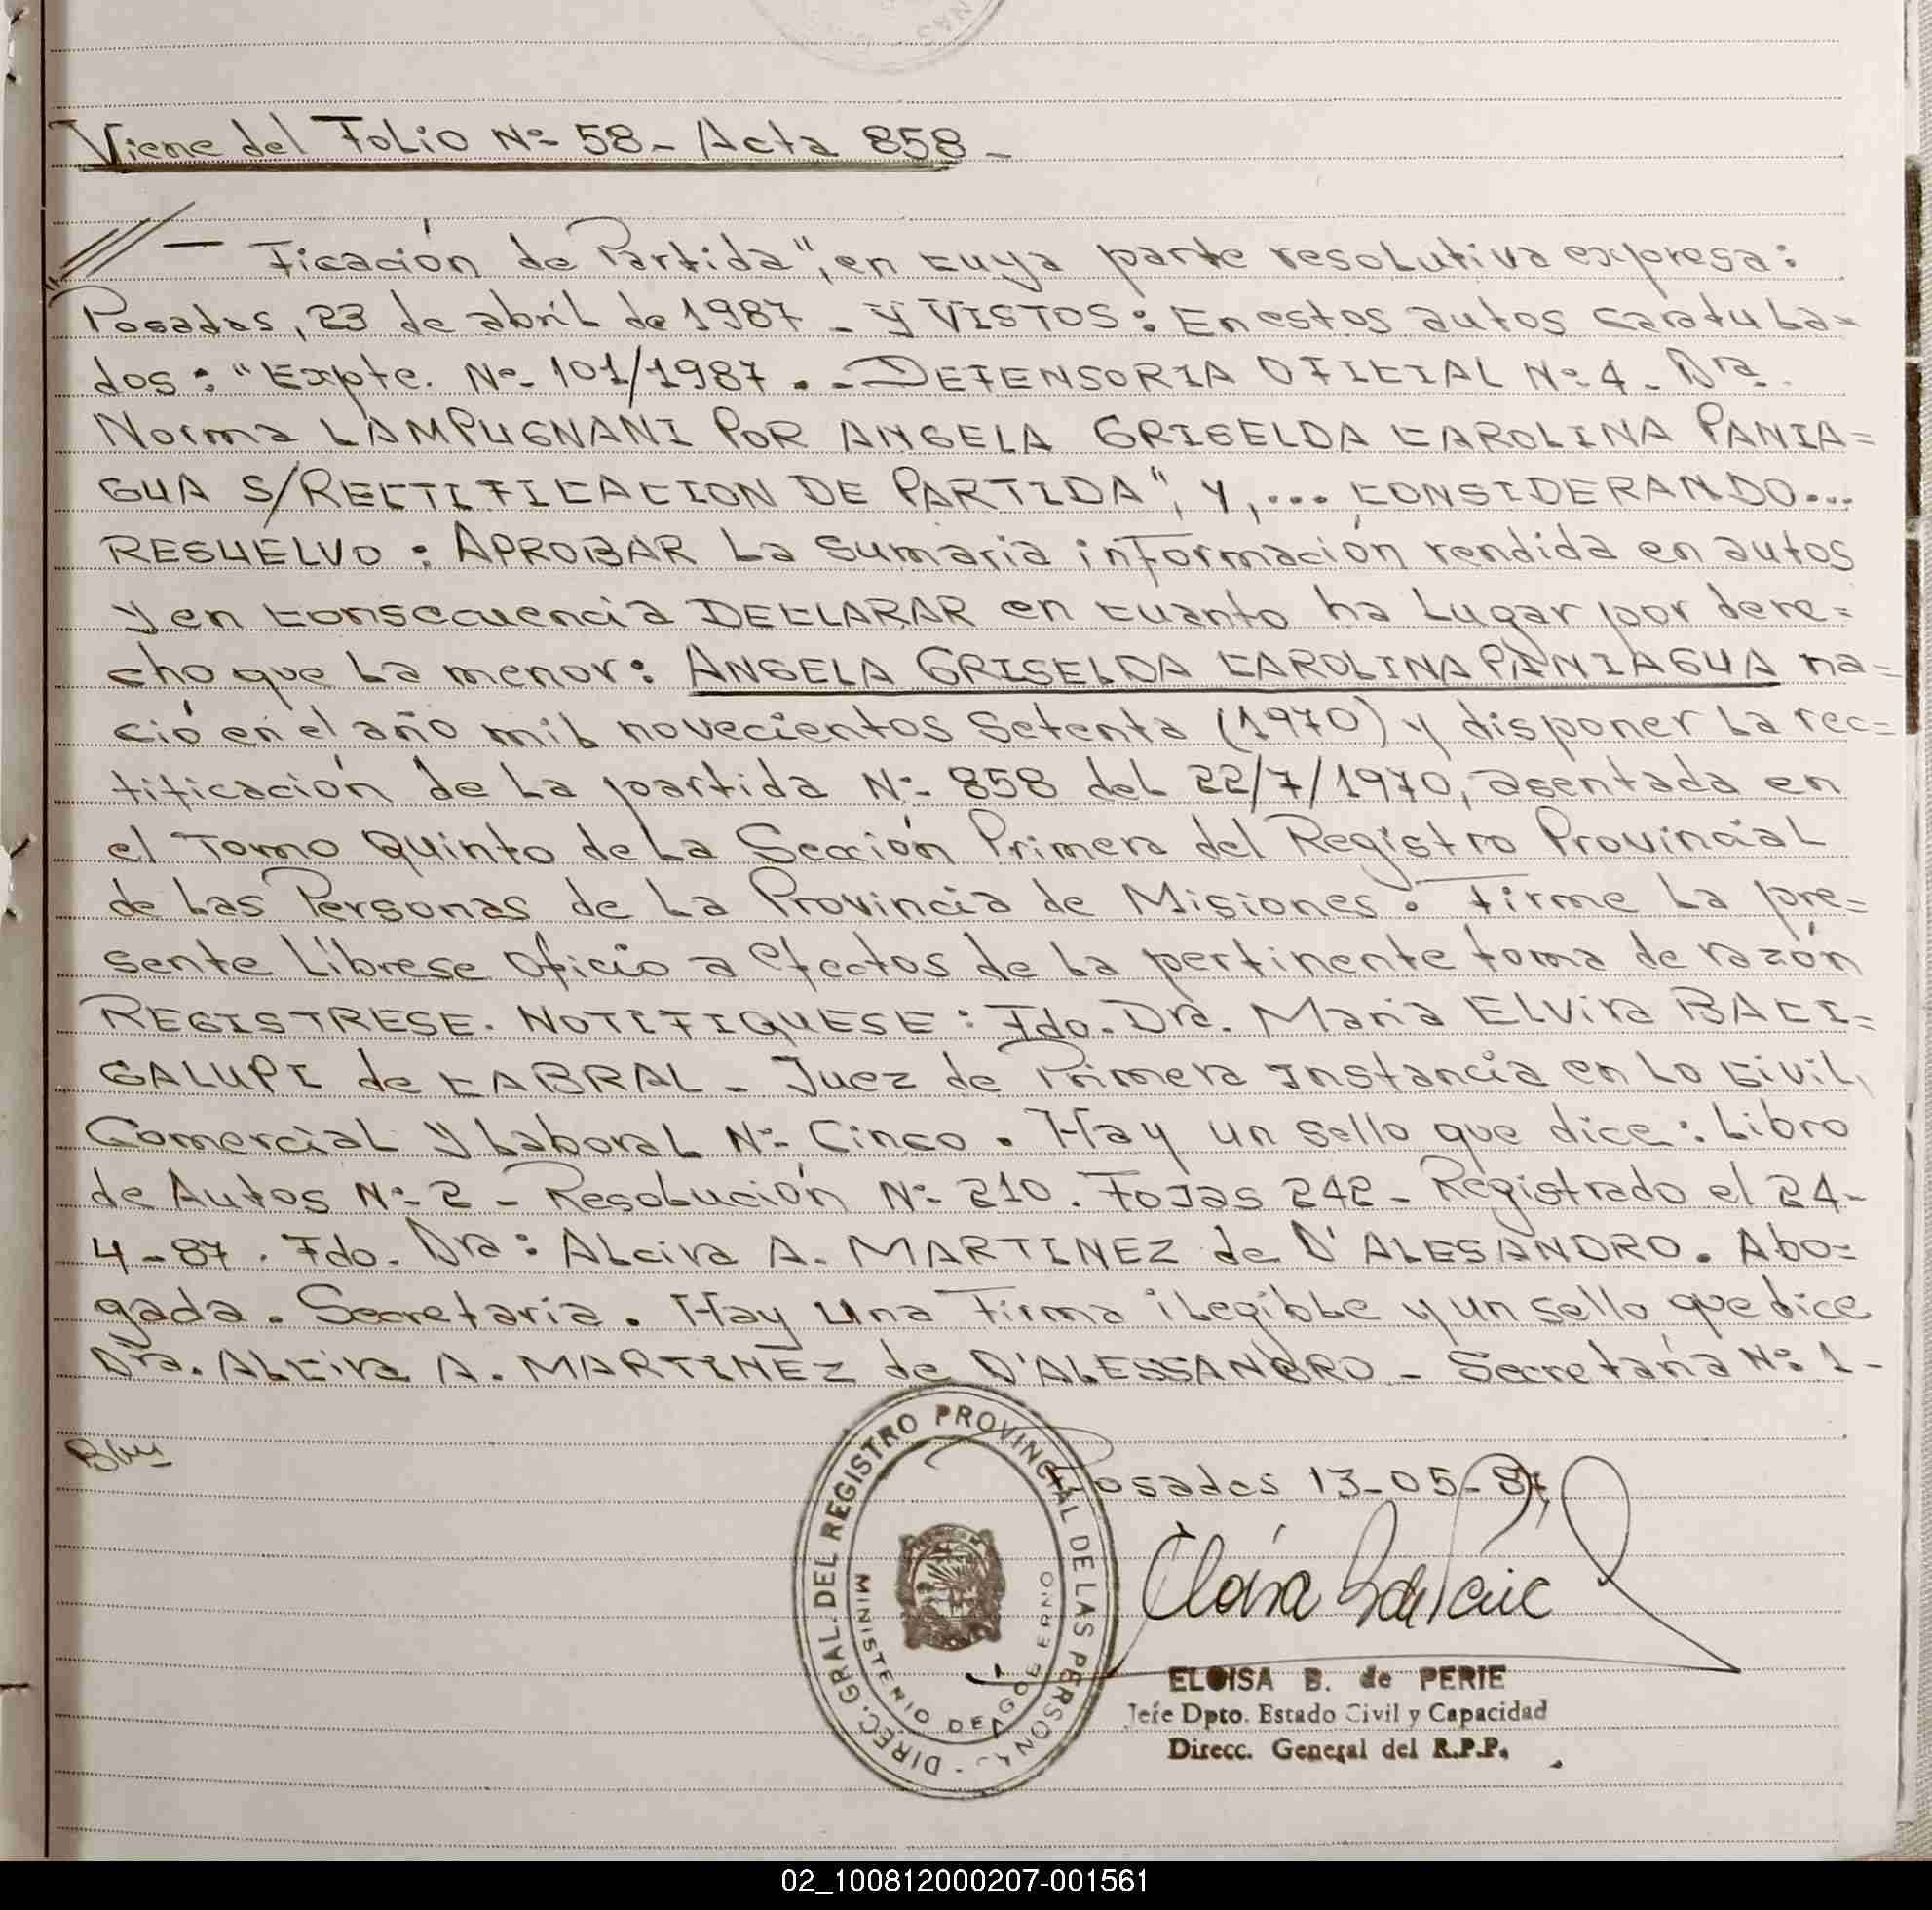 Viene del Folio Nº 58- Acta 858-
///- ficación de Partida", en cuya parte resolutiva expresa:
Posadas, 23 de abril de 1987 - y VISTOS: En estos autos caratula=
dos: "Expte. Nº 101/1987.-DEFENSORIA OFICIAL Nº 4- Dra.
Norma LAMPUGNANI POR ANGELA GRISELDA CAROLINA PANIA=
GUA S/RECTIFICACION DE PARTIDA", Y,... CONSIDERANDO...
RESUELVO: APROBAR La Sumaria información rendida en autos
y en consecuencia DECLARAR en cuanto ha Lugar por dere=
cho que La menor: ANGELA GRISELDA CAROLINA PANIAGUA na=
ció en el año mil novecientos Setenta (1970) y disponer La rec=
tificación de La partida Nº 858 del 22/7/1970, asentada en
el Tomo Quinto de La Sección Primera del Registro Provincial
de Las Personas de La Provincia de Misiones. Firme La pre=
sente Líbrese Oficio a efectos de La pertinente toma de razón
REGISTRESE. NOTIFIQUESE: Fdo. Dra. Maria ELVira BACI=
GALUPI de CABRAL- Juez de Primera Instancia en Lo Civil,
Comercial y Laboral Nº Cinco. Hay un sello que dice: Libro
de Autos Nº 2- Resolución Nº 210. Fojas 242- Registrado el 24-
4-87. Fdo. Dra: Alcira A. MARTINEZ de D'ALESANDRO. Abo=
gada. Secretaria. Hay una Firma ilegible y un sello que dice
Dra. Alcira A. MARTINEZ de D'ALESSANDRO- Secretaría Nº 1-
Posadas 13-05-87
DIREC. GRAL. DEL REGISTRO PROVINCIAL DE LAS PERSONAS
MINISTERIO DE GOBIERNO
ELOISA B. de PERIE
Jefe Dpto. Estado Civil y Capacidad
Direcc. General del R.P.P.
02_100812000207-001561